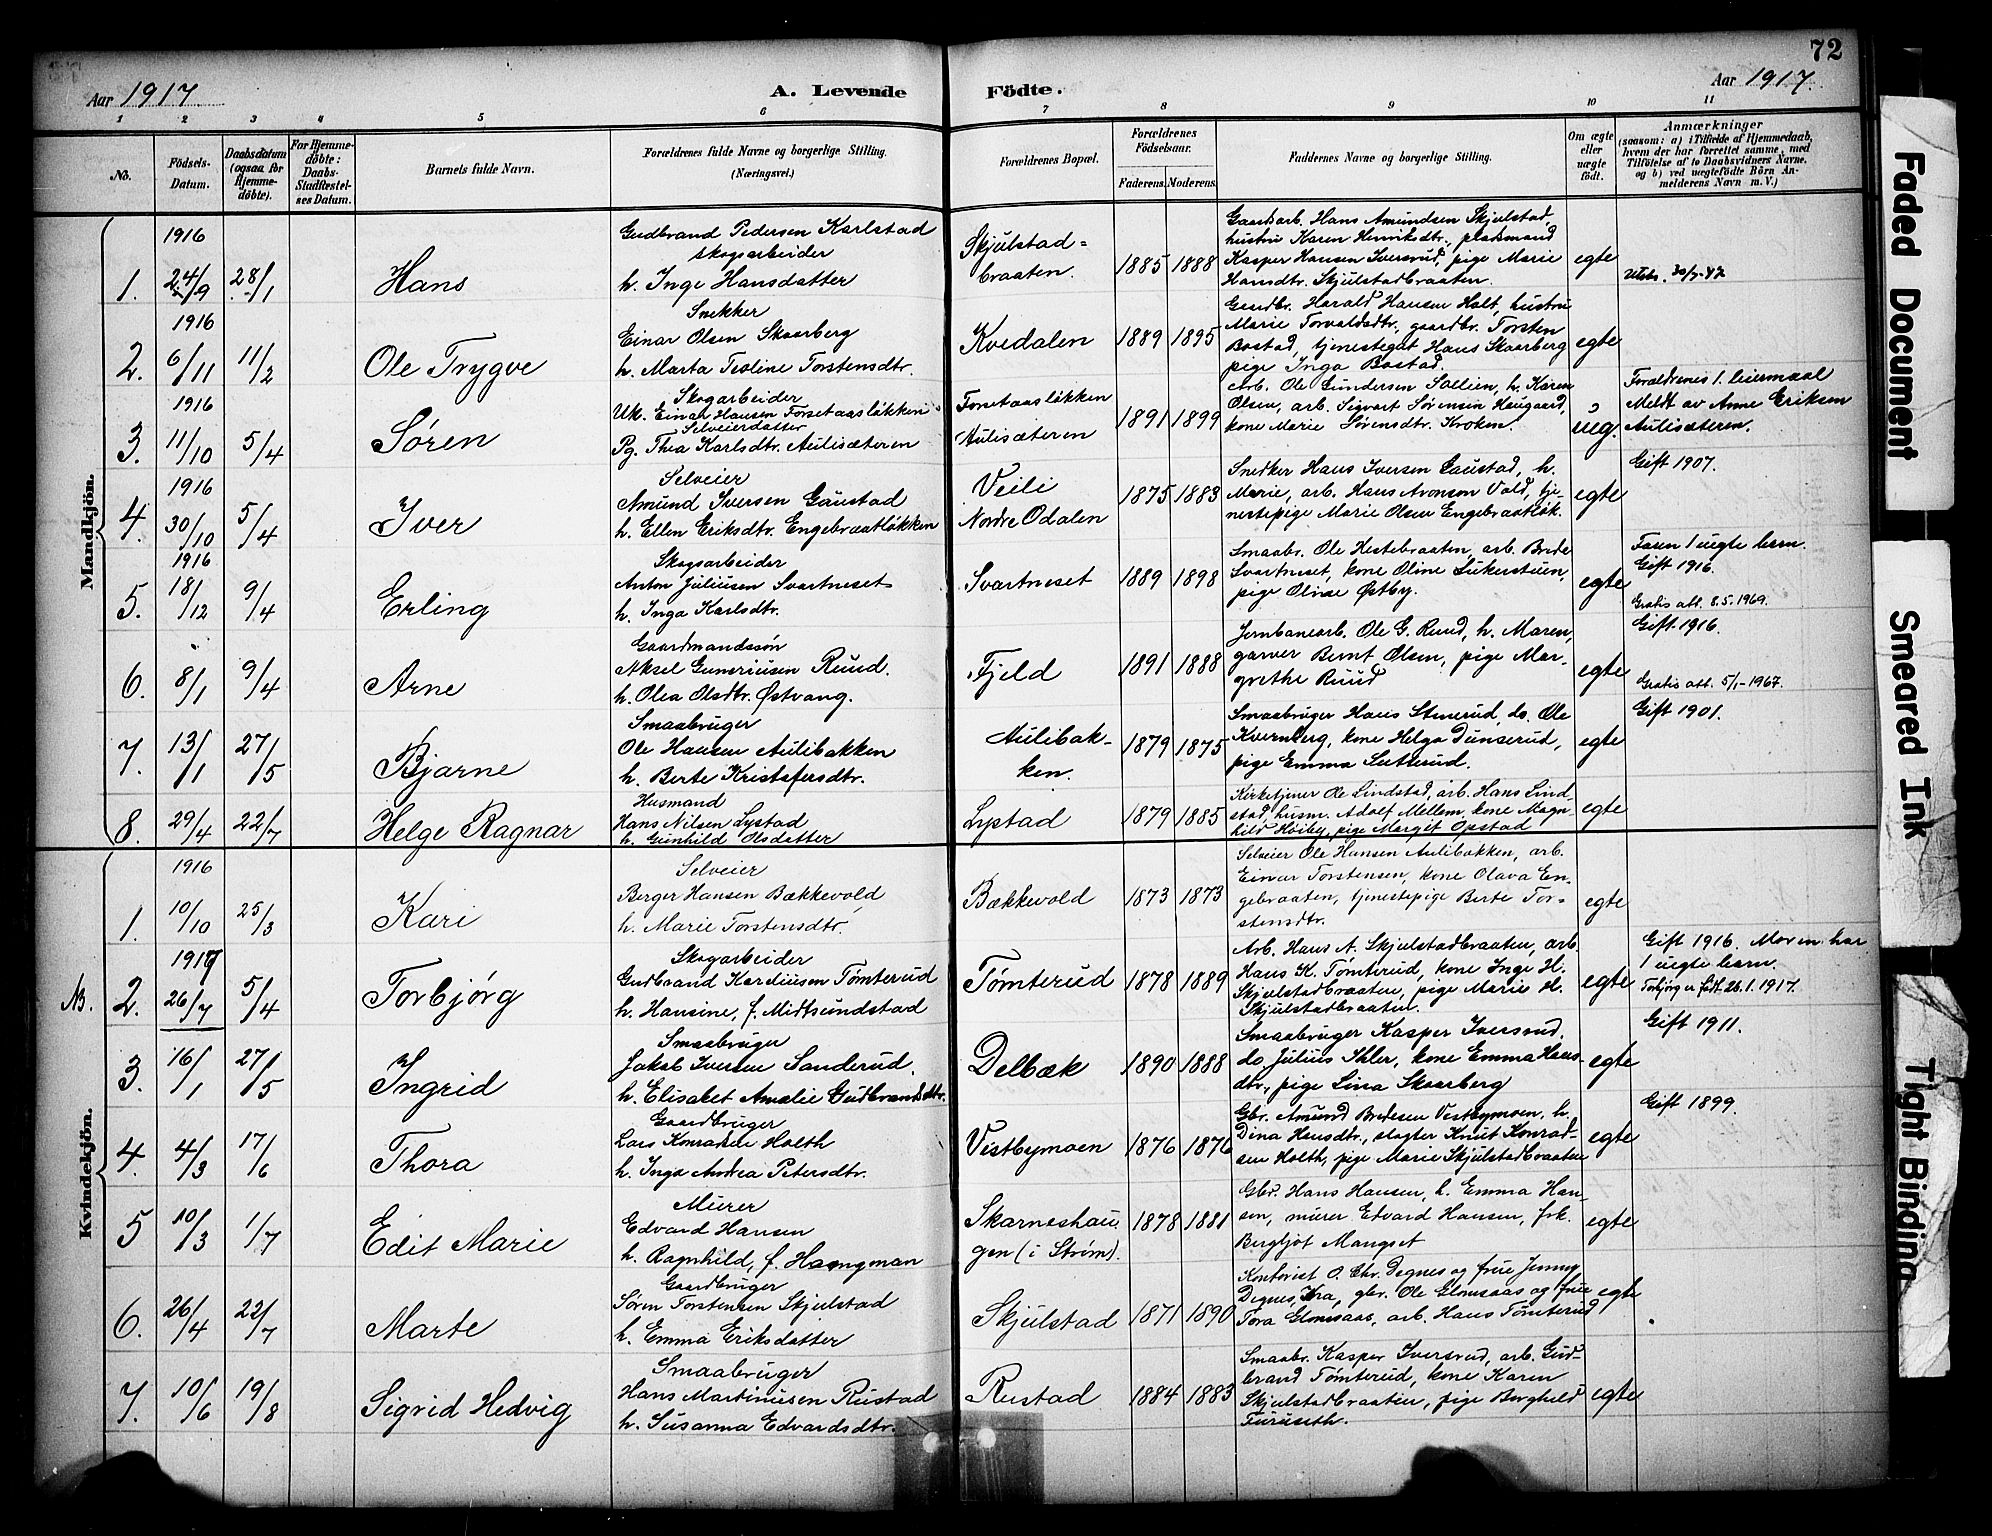 72
Aar 1917
A. Levende
Födte.
Aar 1917.
1 2 3 4 5 6 7 8 9 10 11
No.
Födsels-
Datum.
Daabsdatum
(ogsaa for
Hjemme-
döbte).
For Hjemme-
döbte:
Daabs-
Stadfæstel-
ses Datum.
Barnets fulde Navn.
Forældrenes fulde Navne og borgerlige Stilling.
(Næringsvei.)
Forældrenes Bopæl.
Forældrenes
Födselsaar.
Faderens. Moderens.
Faddernes Navne og borgerlige Stilling.
Om ægte
eller
uægte
født.
Anmærkninger
(saasom: a) i Tilfælde af Hjemmedaab,
hvem der har forrettet samme, med
Tilföielse af to Daabsvidners Navne.
og b) ved uægtefödte Börn An-
melderens Navn m. V.)
Mandkjön.
1.
1916
24/9
28/1
Hans
Gudbrand Pedersen Karlstad
skogsarbeider
h. Inge Hansdatter
Skjulstad=
braaten.
1885 1888
Gaardarb. Hans Amundsen Skjulstad,
hustru Karen Henriksdtr., pladsmand
Kasper Hansen Iversrud, pige Marie
Hansdtr. Skjulstadbraaten.
egte
2.
1916
6/11
11/2
Ole Trygve
Snekker
Einar Olsen Skaarberg
h. Marta Teoline Torstensdtr.
Kvedalen
1889 1895
Gaardbr. Harald Hansen Holt, hustru
Marie Torvaldsdtr., gaardbr. Torsten
Bostad, tjenestegut Hans Skaarberg
pige Inga Bostad.
egte
3.
1916
11/10
5/4
Søren
Skogarbeider
Uk. Einar Hansen Forsetaasløkken
Selveierdatter
Pg. Thea Karlsdtr. Aulisæteren
Forsetaasløkken
Aulisæteren
1891 1899
Arb. Ole Gundersen Sollien, h. Karen
Olsen, arb. Sigvart Sørensen Haugaard,
kone Marie Sørensdtr. Kroken.
ueg.
Forældrenes 1. leiermaal
Meldt av Anne Eriksen
Aulisæteren.
4.
1916
30/10
5/4
Iver
Selveier
Amund Iversen Gaustad
h. Ellen Eriksdtr. Engebraatløkken
Veili
Nordre Odalen
1875 1883
Snedker Hans Iversen Gaustad, h.
Marie, arb. Hans Aronson Vold, tje-
nestepige Marie Olsen Engebraatløk.
egte
Gift 1907.
5.
1916
18/12
9/4
Erling
Skogsarbeider
Anton Juliusen Svartneset
h. Inga Karlsdtr.
Svartneset
1889 1898
Smaabr. Ole Hestebraaten, arb. Brede
Svartneset, kone Oline Lukerstuen,
pige Oline Østby.
egte
Faren 1 uegte barn.
Gift 1916.
Gratis att. 8.5.1969.
6.
8/1
9/4
Arne
Gaardmandssøn
Aksel Guneriusen Ruud.
h. Olea Olsdtr. Østvang.
Fjeld
1891 1888
Jernbanearb. Ole G. Ruud, h. Maren,
garver Bernt Olsen, pige Mar-
grethe Ruud
egte
Gift 1916.
Gratis att. 5/1-1967.
7.
13/1
27/5
Bjarne
Smaabruger
Ole Hansen Aulibakken
h. Berte Kristofersdtr.
Aulibak-
ken.
1879 1875
Smaabruger Hans Stuerud, do. Ole
Kvernberg, kone Helga Dunserud,
pige Emma Sæterud.
egte
Gift 1901.
8.
29/4
22/7
Helge Ragnar
Husmand
Hans Nilsen Lystad
h. Gunhild Olsdatter
Lystad
1879 1885
Kirketjener Ole Lindstad, arb. Hans Lind-
stad, husm. Adolf Mellem, kone Magn-
hild Høiby, pige Margit Opstad
egte
Kvindekjön.
1.
1916
10/10
25/3
Kari
Selveier
Berger Hansen Bækkevold
h. Marie Torstensdtr.
Bækkevold
1873 1873
Selveier Ole Hansen Aulibakken, arb.
Einar Torstensen, kone Olava En-
gebraaten, tjenestepige Berte Tor=
stensdtr.
egte
NB.
2.
1917
26/7
5/4
Torbjørg
Skogarbeider
Gudbrand Kardiusen Tømterud
h. Hansine, f. Midtsundstad
Tømterud
1878 1889
Arb. Hans A. Skjulstadbraaten, arb.
Hans K. Tømterud, kone Inge H.
Skjulstadbraaten, pige Marie H.
Skjulstadbraaten.
egte
Gift 1916. Moren har
1 uegte barn.
Torbjørg er født 26.1.1917.
3.
16/1
27/5
Ingrid
Smaabruger
Jakob Iversen Sanderud.
h. Elisabet Amalie Gudbrandsdtr.
Delbæk
1890 1888
Smaabruger Kasper Iversrud,
do Julius Ihler, kone Emma Hans-
dtr., pige Lina Skaarberg
egte
Gift 1911.
4.
4/3
17/6
Thora
Gaardbruger
Lars Konradsen Holth
h. Inga Andrea Petersdtr.
Vestbymoen
1876 1876
Gbr. Amund Bredesen Vestbymoen, h.
Dina Hansdtr., slagter Knut Konrad-
sen Holth, pige Marie Skjulstadbraaten
egte
Gift 1899.
5
10/3
1/7
Edit Marie
Murer
Edvard Hansen
h. Ragnhild, f. Haangman
Skarneshau
gen (i Strøm).
1878 1881
Gbr. Hans Hansen, h. Emma Han-
sen, murer Edvard Hansen, frk.
Bergljot Mangset
egte
6.
26/4
22/7
Marte
Gaardbruger
Søren Torstensen Skjulstad
h. Emma Eriksdatter
Skjulstad
1871 1890
Kontorist O. Chr. Degnes og frue Jenny
Degnes, Kra, gbr. Ole Glomsaas og frue
Tora Glomsaas, arb. Hans Tømterud
egte
7.
10/6
19/8
Sigrid Hedvig
Smaabruger
Hans Martiniusen Rustad
h. Susanna Edvardsdtr.
Rustad
1884 1883
Smaabr. Kasper Iversrud, arb. Gud-
brand Tømterud, kone Karen
Skjulstadbraaten, pige Borghild
Furuseth.
egte
Faded Document
Smeared Ink
Tight Binding